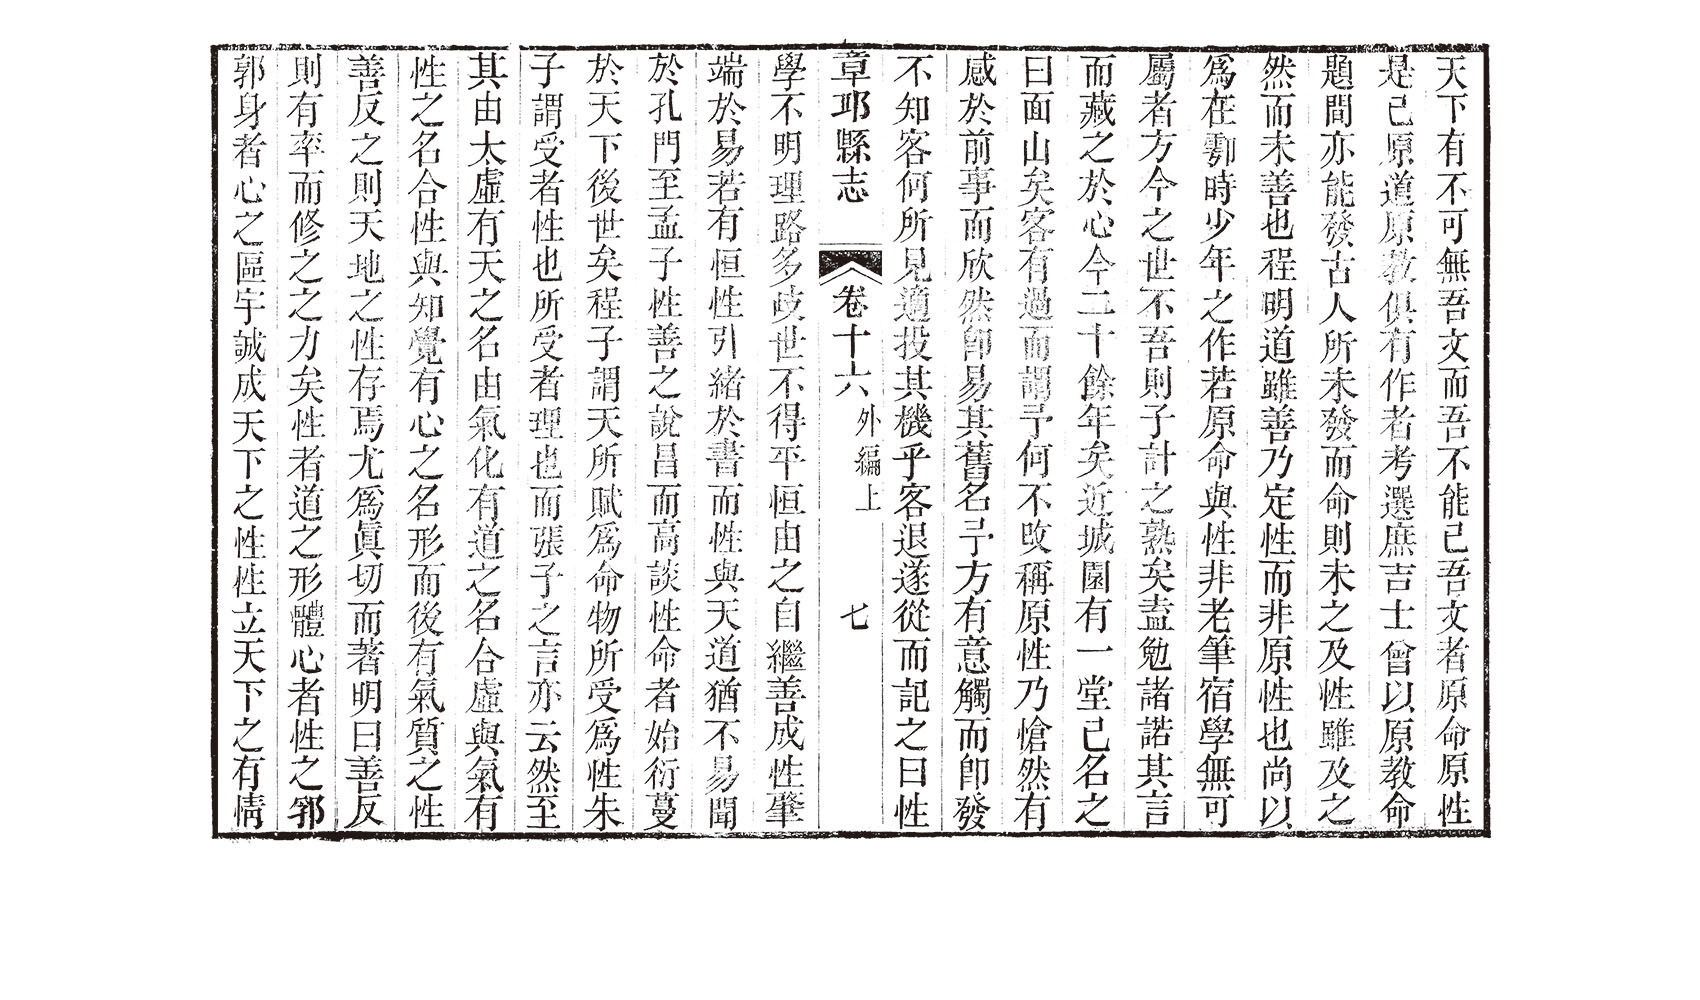 天下有不可無吾文而吾不能已吾文者原命原性
是已原道原教俱有作者考選庶吉士曾以原教命
題間亦能發古人所未發而命則未之及性雖及之
然而未善也程明道雖善乃定性而非原性也尚以
爲在鄠時少年之作若原命與性非老筆宿學無可
屬者方今之世不吾則子計之熟矣盍勉諸諾其言
而藏之於心今二十餘年矣近城園有一堂已名之
曰面山矣客有過而謂予何不改稱原性乃愴然有
感於前事而欣然卽易其舊名予方有意觸而卽發
不知客何所見適投其機乎客退遂從而記之曰性
章邱縣志 卷十六 外編上 七
學不明理路多歧世不得平恒由之自繼善成性肇
端於易若有恒性引緒於書而性與天道猶不易聞
於孔門至孟子性善之說昌而高談性命者始衍蔓
於天下後世矣程子謂天所賦爲命物所受爲性朱
子謂受者性也所受者理也而張子之言亦云然至
其由太虛有天之名由氣化有道之名合虛與氣有
性之名合性與知覺有心之名形而後有氣質之性
善反之則天地之性存焉尤爲眞切而著明曰善反
則有率而修之之力矣性者道之形體心者性之郛
郭身者心之區宇誠成天下之性性立天下之有情